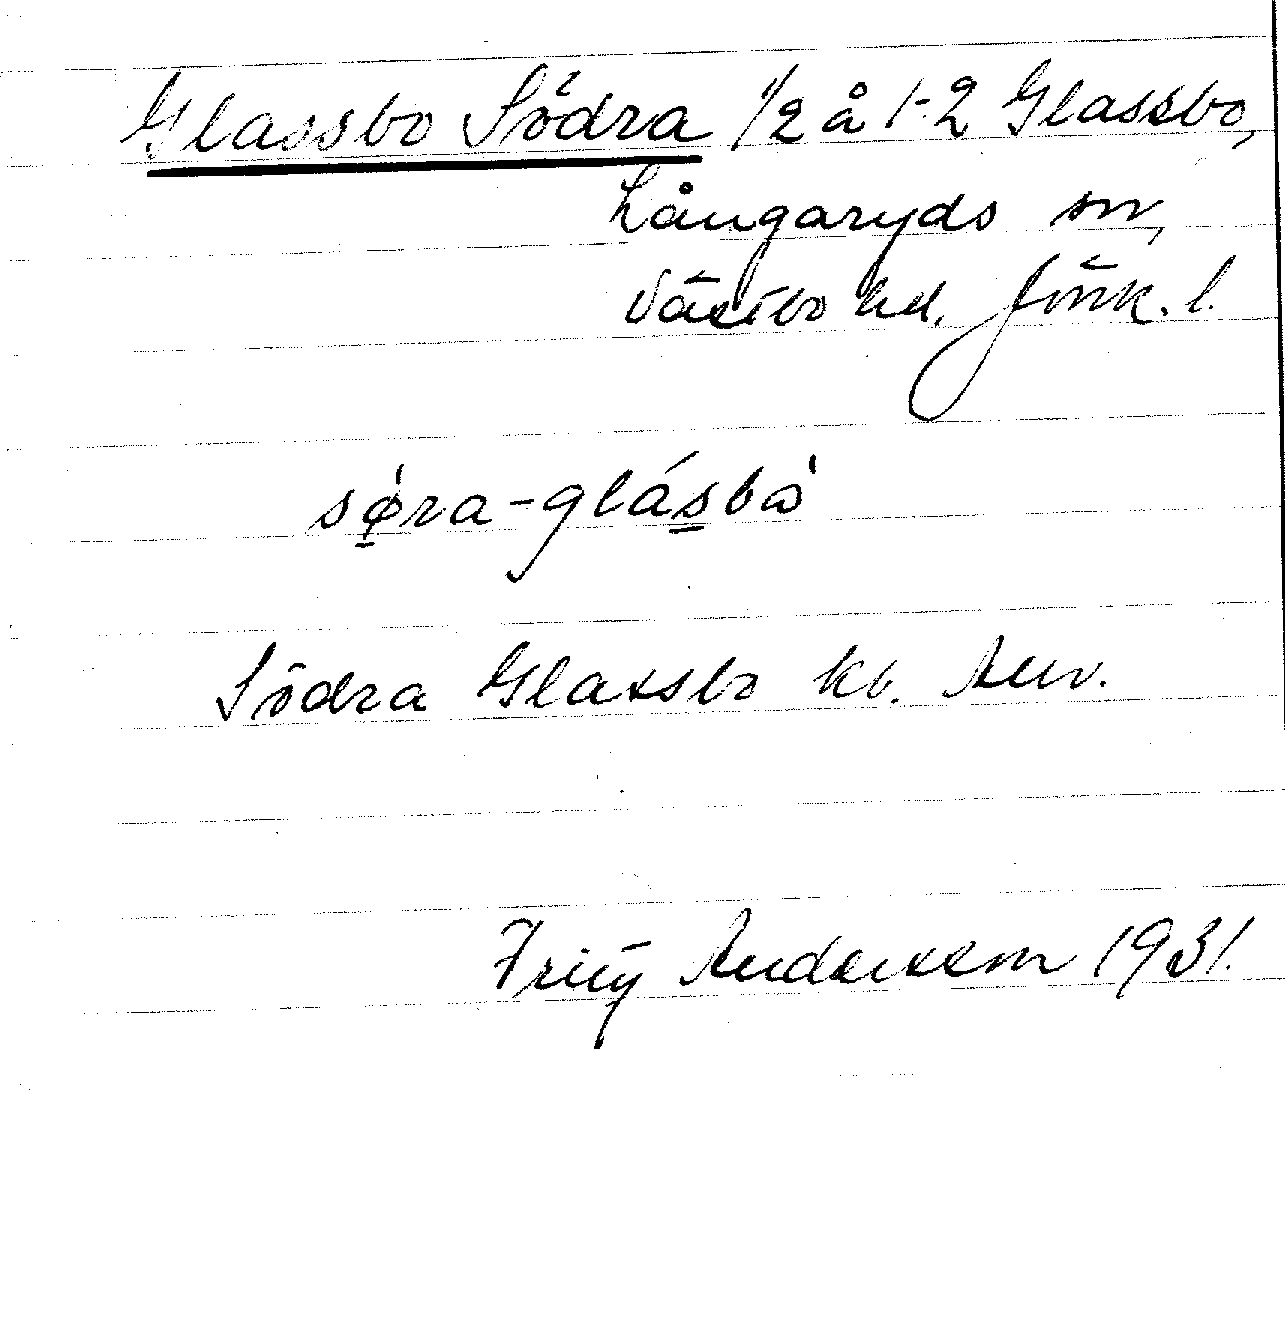 Glassbo Södra 1/2 å 1-2 Glassbo,
Långaryds sn,
Västbo hd. Jönk. l.
sǿ̱ra-glás̱bå̀
Södra Glassbo kb. Anv.
Andersson 1931.